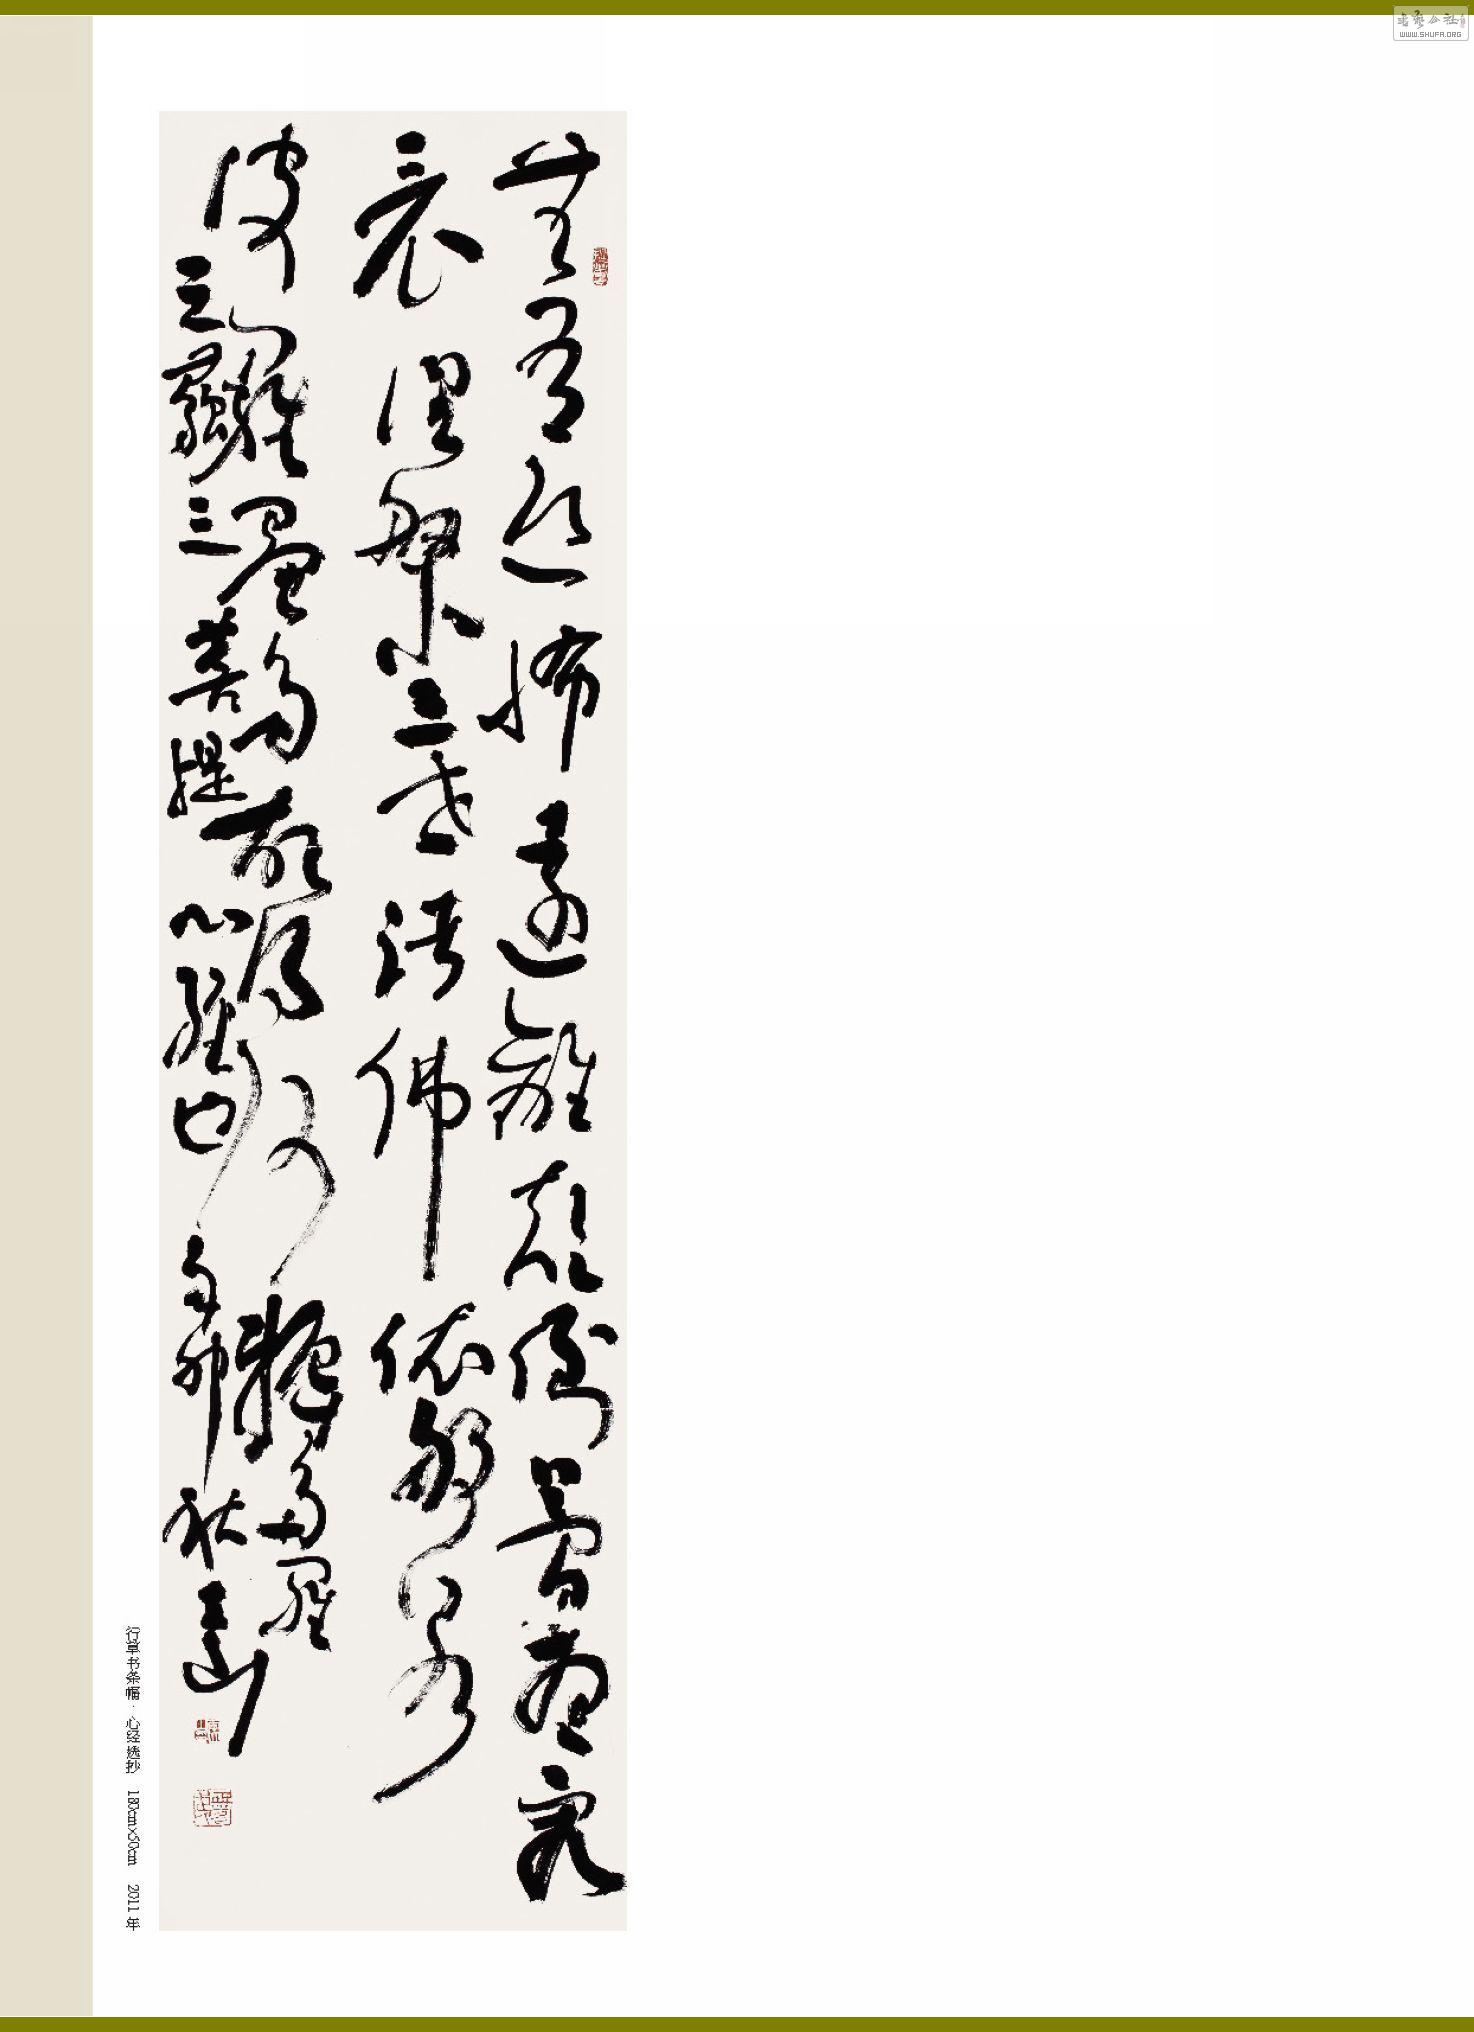 無有恐怖遠離顛倒夢想究
竟涅槃三世諸佛依般若
波羅蜜多故得阿耨多羅
三藐三菩提心經也辛卯秋
行草书条幅·心经选抄 180cm×50cm 2011年
書藝公社
WWW.SHUFA.ORG